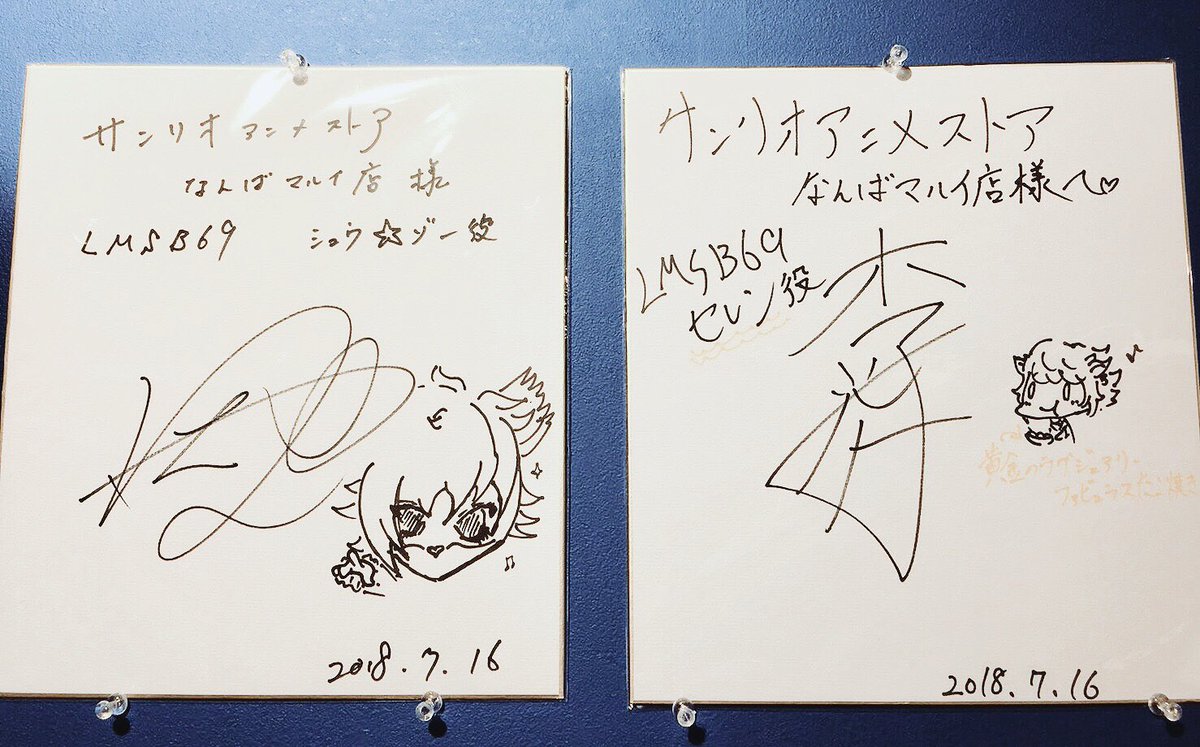 サンリオアニメストア
なんばマルイ店 様
LMSB69 ショウ☆ゾー役
2018.7.16
サンリオアニメストア
なんばマルイ店様へ♡
LMSB69
セレン役
黄金のラグジュアリー
ファビュラスたこ焼き
2018.7.16